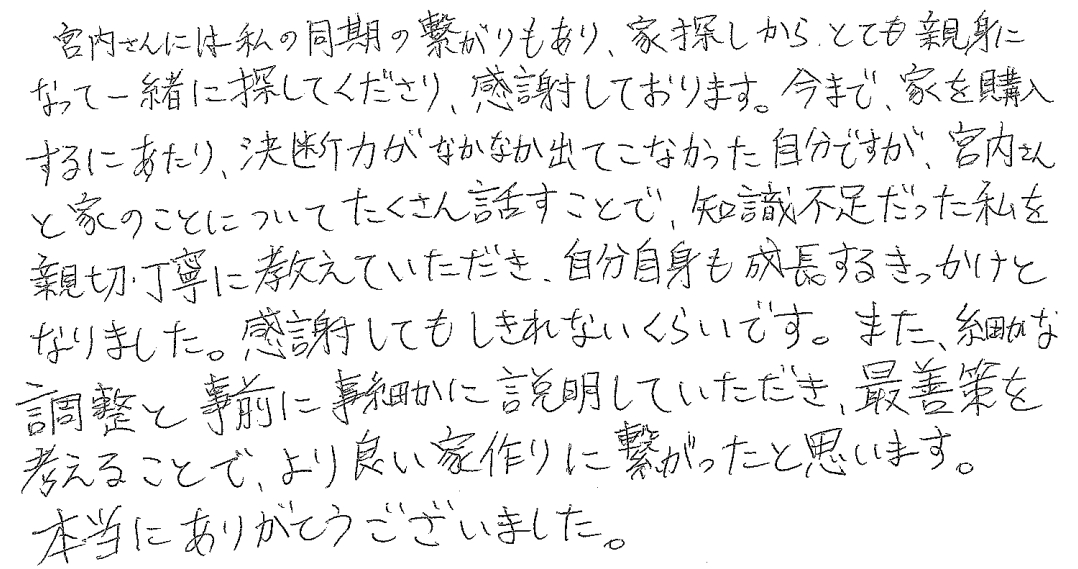 宮内さんには私の同期の繋がりもあり、家探しから、とても親身に
なって一緒に探してくださり、感謝しております。今まで、家を購入
するにあたり、決断力がなかなか出てこなかった自分ですが、宮内さん
と家のことについてたくさん話すことで、知識不足だった私を
親切・丁寧に教えていただき、自分自身も成長するきっかけと
なりました。感謝してもしきれないくらいです。また、細かな
調整と事前に事細かに説明していただき、最善策を
考えることで、より良い家作りに繋がったと思います。
本当にありがとうございました。